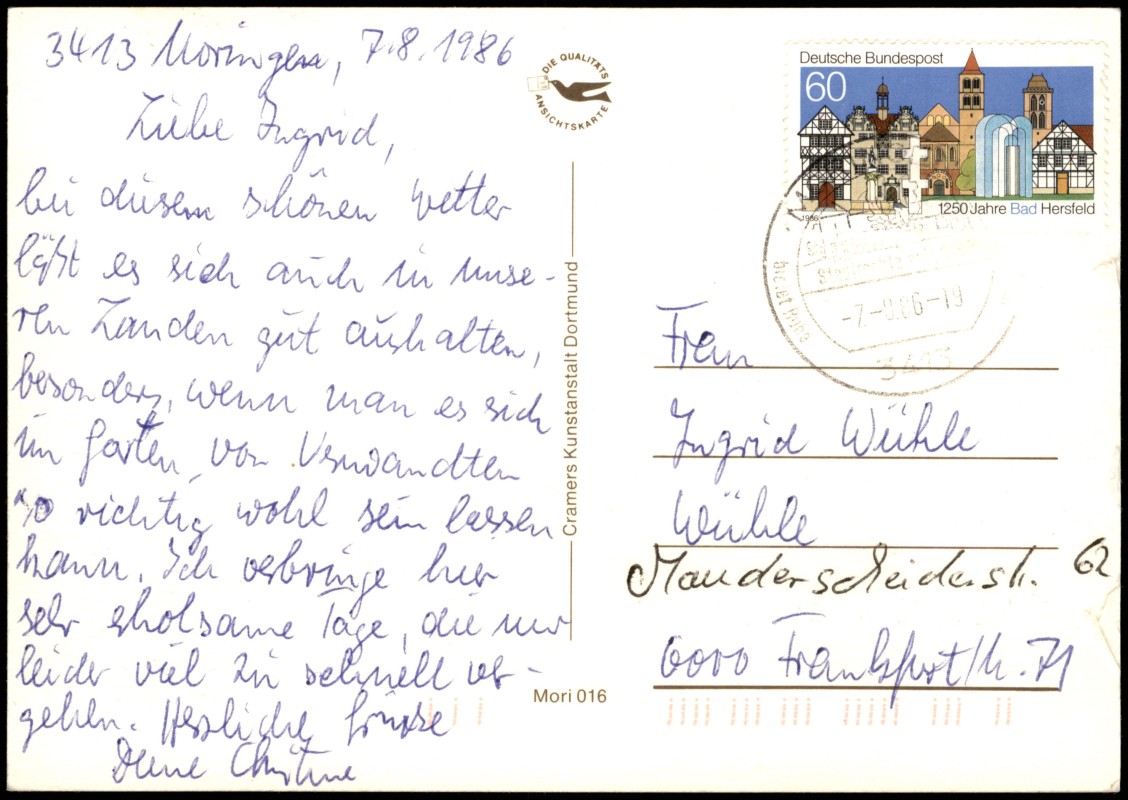 3413 Moringen, 7.8.1986
Liebe Ingrid,
bei diesem schönen Wetter
läßt es sich auch in unse-
ren Landen gut aushalten,
besonders, wenn man es sich
im Garten von Verwandten
so richtig wohl sein lassen
kann. Ich verbringe hier
sehr erholsame Tage, die nur
leider viel zu schnell ver-
gehen. Herzliche Grüße
Deine Christine
DIE QUALITÄTS
ANSICHTSKARTE
Cramers Kunstanstalt Dortmund
Mori 016
Deutsche Bundespost
60
1986
1250 Jahre Bad Hersfeld
-7.-8.86-19
3413
Frau
Ingrid Wühle
Wühle
Manderscheiderstr. 62
6000 Frankfurt/M. 71